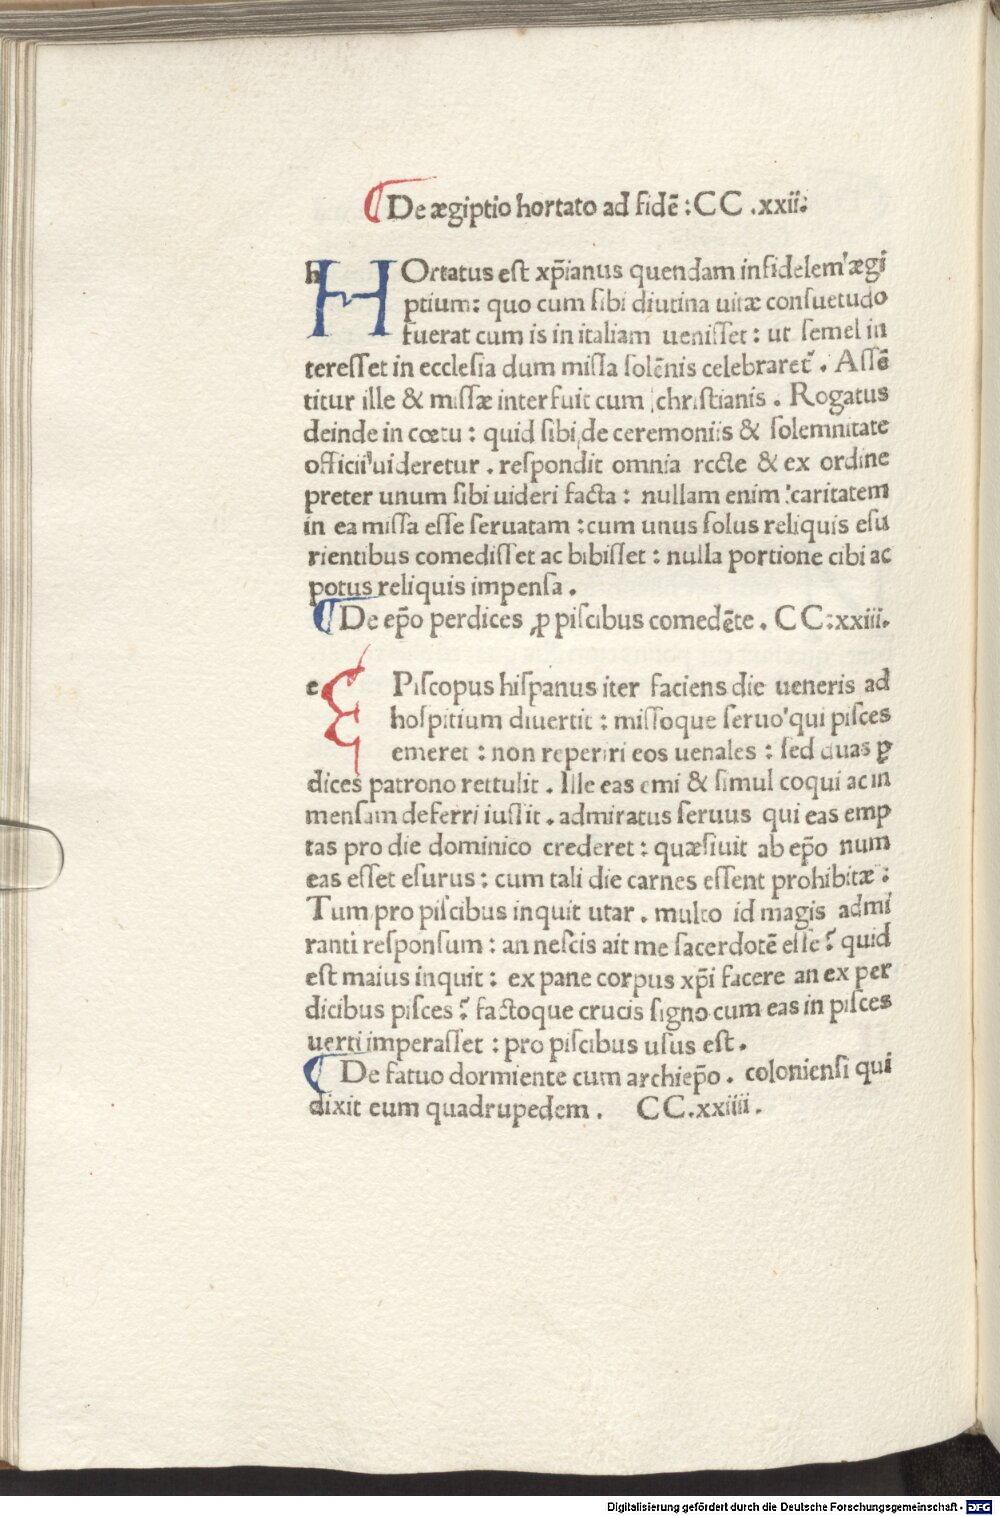 ¶De ægiptio hortato ad fidē : CC .xxii:
HOrtatus est xp̄ianus quendam infidelem ægi
ptium: quo cum sibi diutina uitæ consuetudo
fuerat cum is in italiam uenisset : ut semel in
teresset in ecclesia dum missa solēnis celebraret᷑ . Assē
titur ille & missæ interfuit cum christianis . Rogatus
deinde in cœtu : quid sibi de ceremoniis & solemnitate
officii uideretur . respondit omnia recte & ex ordine
preter unum sibi uideri facta : nullam enim caritatem
in ea missa esse seruatam : cum unus solus reliquis esu
rientibus comedisset ac bibisset : nulla portione cibi ac
potus reliquis impensa .
¶De ep̄o perdices ꝓ piscibus comedēte . CC:xxiii.
EPiscopus hispanus iter faciens die ueneris ad
hospitium diuertit : missoque seruo qui pisces
emeret : non reperiri eos uenales : sed duas ꝑ
dices patrono rettulit . Ille eas emi & simul coqui ac in
mensam deferri iussit . admiratus seruus qui eas emp
tas pro die dominico crederet : quæsiuit ab ep̄o num
eas esset esurus : cum tali die carnes essent prohibitæ :
Tum pro piscibus inquit utar . multo id magis admi
ranti responsum : an nescis ait me sacerdotē esse ? quid
est maius inquit : ex pane corpus xp̄i facere an ex per
dicibus pisces ? factoque crucis signo cum eas in pisces
uerti imperasset : pro piscibus usus est .
¶ De fatuo dormiente cum archiep̄o . coloniensi qui
dixit eum quadrupedem . CC.xxiiii .
Digitalisierung gefördert durch die Deutsche Forschungsgemeinschaft - DFG